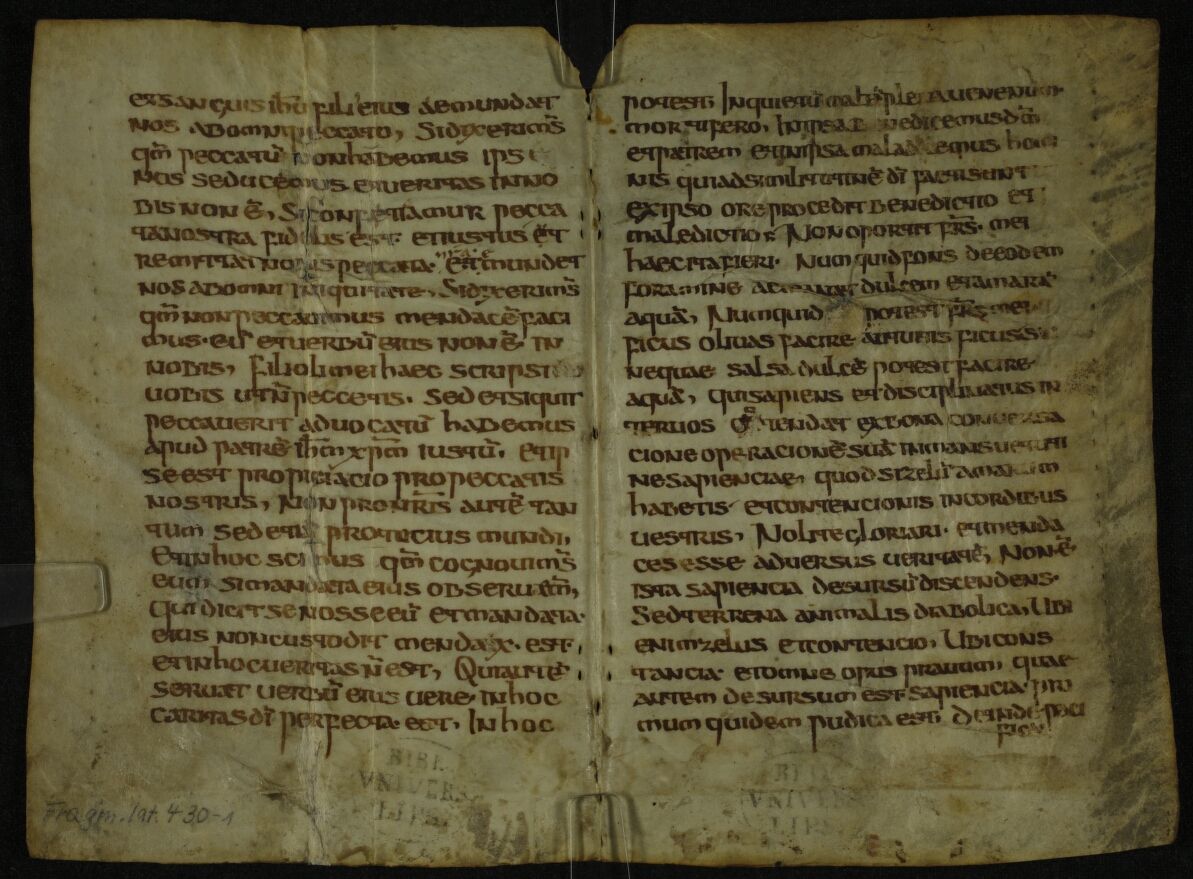 et sanguis ihu fili eius aemundat
nos ab omni peccato, Si dixerim̅s
qm̅ peccatū non habemus ips
nos seducemus et ueritas in no
bis non ē, Si confetamur pecca
ta nostra fidelis est et iustus ēt
remittat nobis peccata et emundet
nos ab omni iniquitate, Si dixerim̅s
qm̅ non peccauimus mendacē faci
mus eū et uerbū eius non ē in
nobis, filioli mei haec scripsi
uobis ut n̄ peccetis. Sed et si quit
peccauerit aduocatū habemus
apud patrē ihm̅ xpm̅ iustū. et ip
se est propiciacio pro peccatis
nostris, Non pro nr̅is autē tan
tum sed etiā pro tocius mundi,
et in hoc scimus qm̅ cognouim̅s
eum si mandata eius obseruem̅,
Qui dicit se nosse eū et mandata
eius non custodit mendax est.
et in hoc ueritas n̄ est, Qui autē
seruat uerbū eius uere in hoc
caritas dī perfecta est, In hoc
potest Inquietū malū plena ueneno
mortifero, In ipsa benedicemus dm̅
et patrem et in ipsa maladicemus homi
nis qui ad similitutinē dī facti sunt
ex ipso ore procedit benedictio et
maledictio, Non oportit fr̅s mei
haec ita fieri. Numquid fons de eodem
foramine dulcem et amarā
aquā, Numquid potest fr̅s mei
ficus oliuas facire aut uitis ficus si
neque salsa dulcē potest facire
aquā, qui sapiens et disciplinatus in
ter uos ostendat ex bona conuersa
cione operacionē suā in mansuetuti
ne sapienciae, quod si zelū amarum
habetis et contencionis in cordibus
uestris, Nolite gloriari et menda
ces esse aduersus ueritatē, Non ē
ista sapiencia desursū discendens
Sed terrena animalis diabolica, Ubi
enim zelus et contencio, Ubi cons
tancia et omne opus prauum, quae
autem desursum est sapiencia pri
mum quidem pudica est, Deinde paci
fica
BIBL.
VNIVERS
LIPS
BIBL
VNIVERS
LIPS
Fragm. lat. 430-1